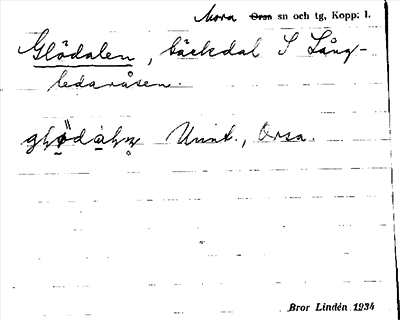 Mora Orsa sn och tg, Kopp. l.
Glödalen, bäckdal S Lång-
ledaråsen.
Unnt., Orsa.
Bror Lindén 1934